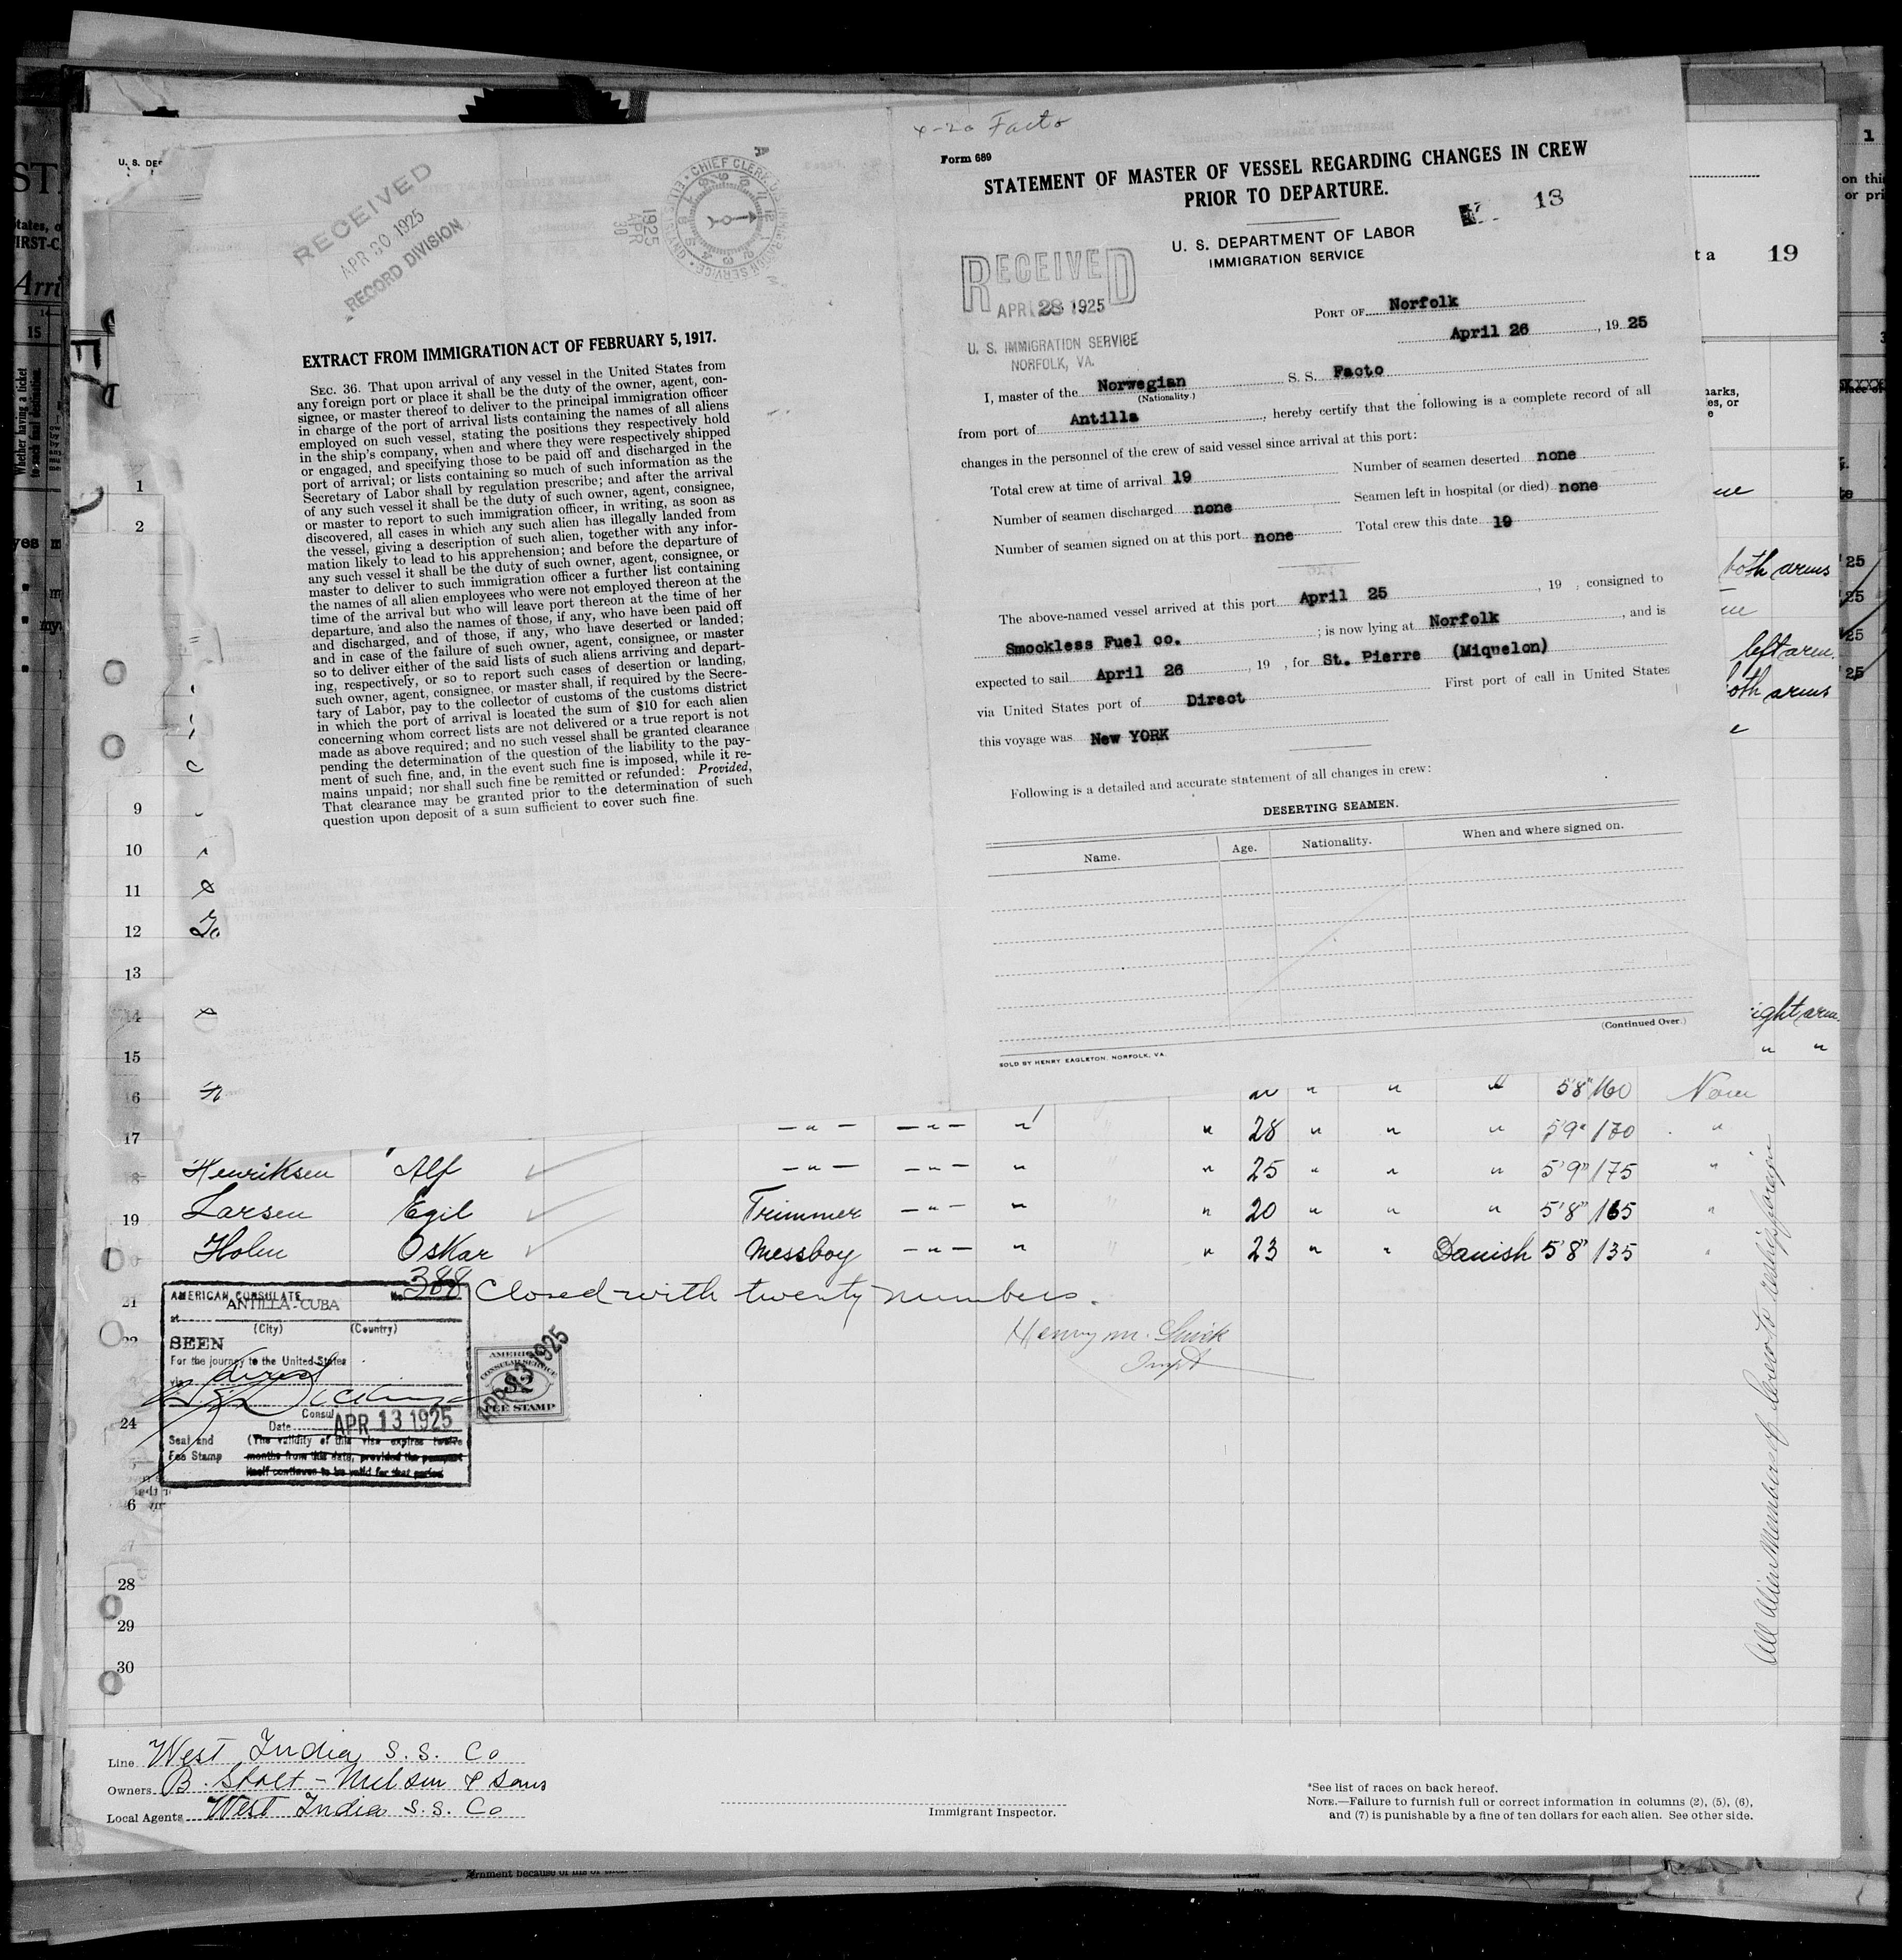 4-20 Facto
Form 689
STATEMENT OF MASTER OF VESSEL REGARDING CHANGES IN CREW
PRIOR TO DEPARTURE.
13
U. S. DEPARTMENT OF LABOR
IMMIGRATION SERVICE
RECEIVED
APR 28 1925
U. S. IMMIGRATION SERVICE
NORFOLK, VA.
PORT OF Norfolk
April 26, 1925
I, master of the Norwegian S. S. Facto
(Nationality.)
from port of Antilla, hereby certify that the following is a complete record of all
changes in the personnel of the crew of said vessel since arrival at this port:
Total crew at time of arrival 19 Number of seamen deserted none
Number of seamen discharged none Seamen left in hospital (or died) none
Number of seamen signed on at this port none Total crew this date 19
The above-named vessel arrived at this port April 25, 19 , consigned to
Smookless Fuel co. ; is now lying at Norfolk, and is
expected to sail April 26, 19 , for St. Pierre (Miquelon)
via United States port of Direct First port of call in United States
this voyage was New YORK
Following is a detailed and accurate statement of all changes in crew:
DESERTING SEAMEN.
Name. Age. Nationality. When and where signed on.
(Continued Over.)
SOLD BY HENRY EAGLETON, NORFOLK, VA.
U. S. DEP
RECEIVED
APR 30 1925
RECORD DIVISION
CHIEF CLERK
1925
APR
30
EXTRACT FROM IMMIGRATION ACT OF FEBRUARY 5, 1917.
SEC. 36. That upon arrival of any vessel in the United States from
any foreign port or place it shall be the duty of the owner, agent, con-
signee, or master thereof to deliver to the principal immigration officer
in charge of the port of arrival lists containing the names of all aliens
employed on such vessel, stating the positions they respectively hold
in the ship's company, when and where they were respectively shipped
or engaged, and specifying those to be paid off and discharged in the
port of arrival; or lists containing so much of such information as the
Secretary of Labor shall by regulation prescribe; and after the arrival
of any such vessel it shall be the duty of such owner, agent, consignee,
or master to report to such immigration officer, in writing, as soon as
discovered, all cases in which any such alien has illegally landed from
the vessel, giving a description of such alien, together with any infor-
mation likely to lead to his apprehension; and before the departure of
any such vessel it shall be the duty of such owner, agent, consignee, or
master to deliver to such immigration officer a further list containing
the names of all alien employees who were not employed thereon at the
time of the arrival but who will leave port thereon at the time of her
departure, and also the names of those, if any, who have been paid off
and discharged, and of those, if any, who have deserted or landed;
and in case of the failure of such owner, agent, consignee, or master
so to deliver either of the said lists of such aliens arriving and depart-
ing, respectively, or so to report such cases of desertion or landing,
such owner, agent, consignee, or master shall, if required by the Secre-
tary of Labor, pay to the collector of customs of the customs district
in which the port of arrival is located the sum of $10 for each alien
concerning whom correct lists are not delivered or a true report is not
made as above required; and no such vessel shall be granted clearance
pending the determination of the question of the liability to the pay-
ment of such fine, and, in the event such fine is imposed, while it re-
mains unpaid; nor shall such fine be remitted or refunded: Provided,
That clearance may be granted prior to the determination of such
question upon deposit of a sum sufficient to cover such fine.
ta 19
both arms
left arm.
oth arms
ight arm.
" "
1
2
9
10
11
12
13
14
15
16 " " " " 5'8" 160 None
17 — " — — " — " " 28 " " " 5'9" 170 "
18 Henriksen Alf — " — — " — " " 25 " " " 5'9" 175 "
19 Larsen Egil Trimmer — " — " " 20 " " " 5'8" 165 "
20 Holm Oskar Messboy — " — " " 23 " " Danish 5'8" 135 "
21 Closed with twenty numbers.
Henry M.
Inspt
AMERICAN CONSULATE No. 388
at ANTILLA-CUBA
(City) (Country)
SEEN
For the journey to the United States
via direct
Consul
Date APR 13 1925
Seal and (The validity of this visa expires twelve
Fee Stamp months from this date, provided the passport
itself continues to be valid for that period
AMERICAN
CONSULAR SERVICE
$2
FEE STAMP
APR 13 1925
24
28
29
30
All Alien Members of Crew to reship foreign
Line West India S. S. Co
Owners B. Stolt-Nielsen & Sons
Local Agents West India S. S. Co
Immigrant Inspector.
*See list of races on back hereof.
NOTE.—Failure to furnish full or correct information in columns (2), (5), (6),
and (7) is punishable by a fine of ten dollars for each alien. See other side.